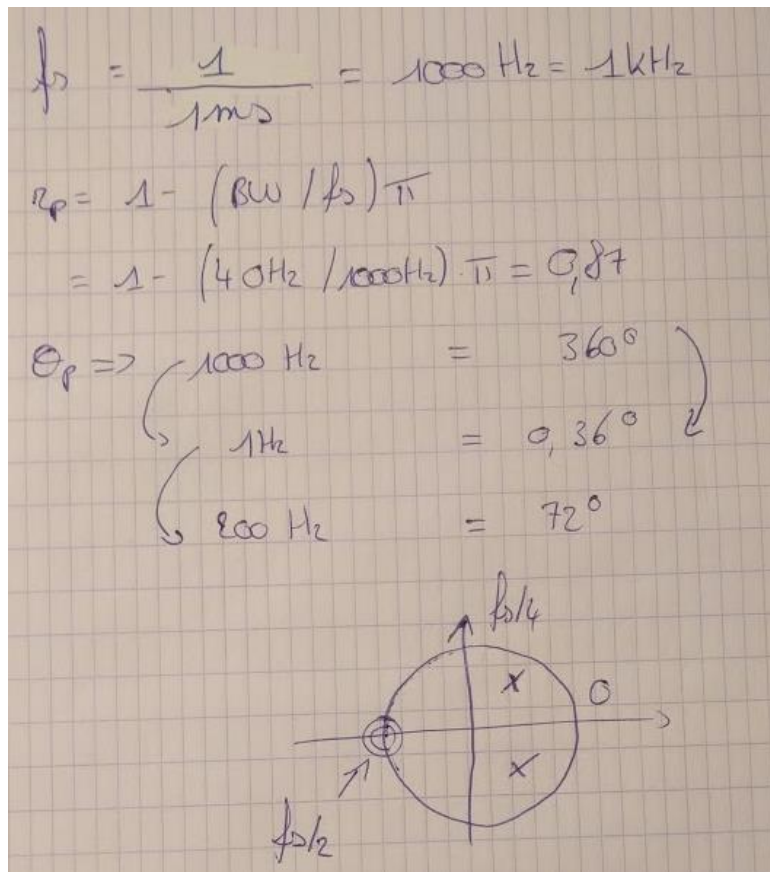 fs = 1 / 1ms = 1000 Hz = 1 kHz
rp = 1 - (BW / fs) π
= 1 - (40Hz / 1000Hz) . π = 0,87
θp => 1000 Hz = 360°
1Hz = 0,36°
200 Hz = 72°
fs/4
0
fs/2